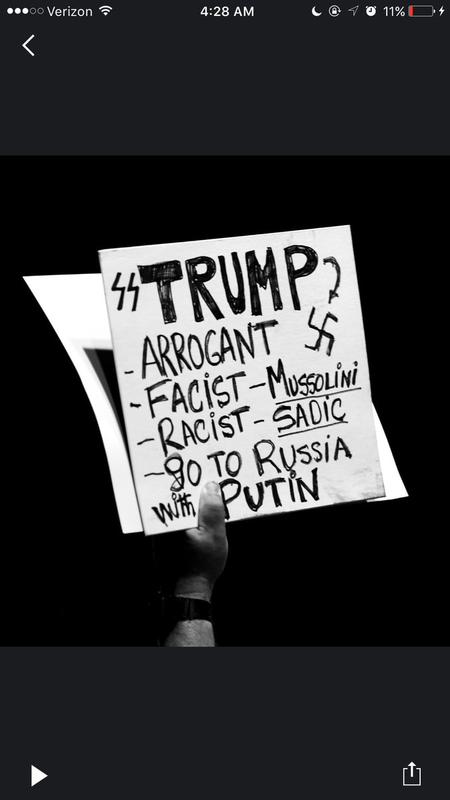 Verizon 4:28 AM 11%
TRUMP
- ARROGANT
- FACIST - MUSSOLINI
- RACIST - SADIC
- go TO RUSSIA
with PUTIN